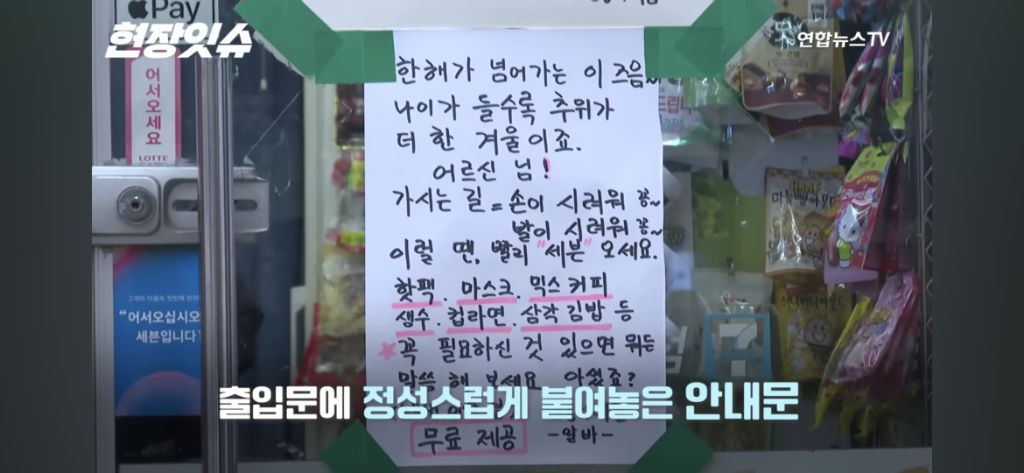 Pay
현장잇슈
연합뉴스TV
어서오세요
LOTTE
한해가 넘어가는 이 즈음~
나이가 들수록 추위가
더 한 겨울이죠.
어르신 님!
가시는 길 = 손이 시려워 꽁~
발이 시려워 꽁~
이럴 땐, 빨리 "세븐" 오세요.
핫팩. 마스크. 믹스커피
생수. 컵라면. 삼각김밥 등
꼭 필요하신 것 있으면 뭐든
말씀 해 보세요 아셨죠?
무료 제공 -알바-
"어서오십시오
세븐입니다"
출입문에 정성스럽게 붙여놓은 안내문